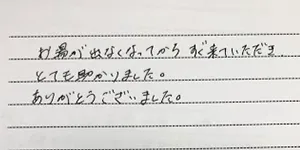 お湯が出なくなってから すぐ来ていただき
とても助かりました。
ありがとうございました。